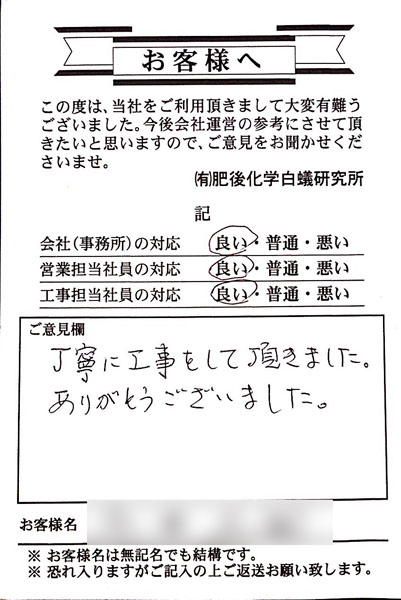 お客様へ
この度は、当社をご利用頂きまして大変有難う
ございました。今後会社運営の参考にさせて頂
きたいと思いますので、ご意見をお聞かせくだ
さいませ。
㈲肥後化学白蟻研究所
記
会社(事務所)の対応 良い・普通・悪い
営業担当社員の対応 良い・普通・悪い
工事担当社員の対応 良い・普通・悪い
ご意見欄
丁寧に工事をして頂きました。
ありがとうございました。
お客様名
※ お客様名は無記名でも結構です。
※ 恐れ入りますがご記入の上ご返送お願い致します。